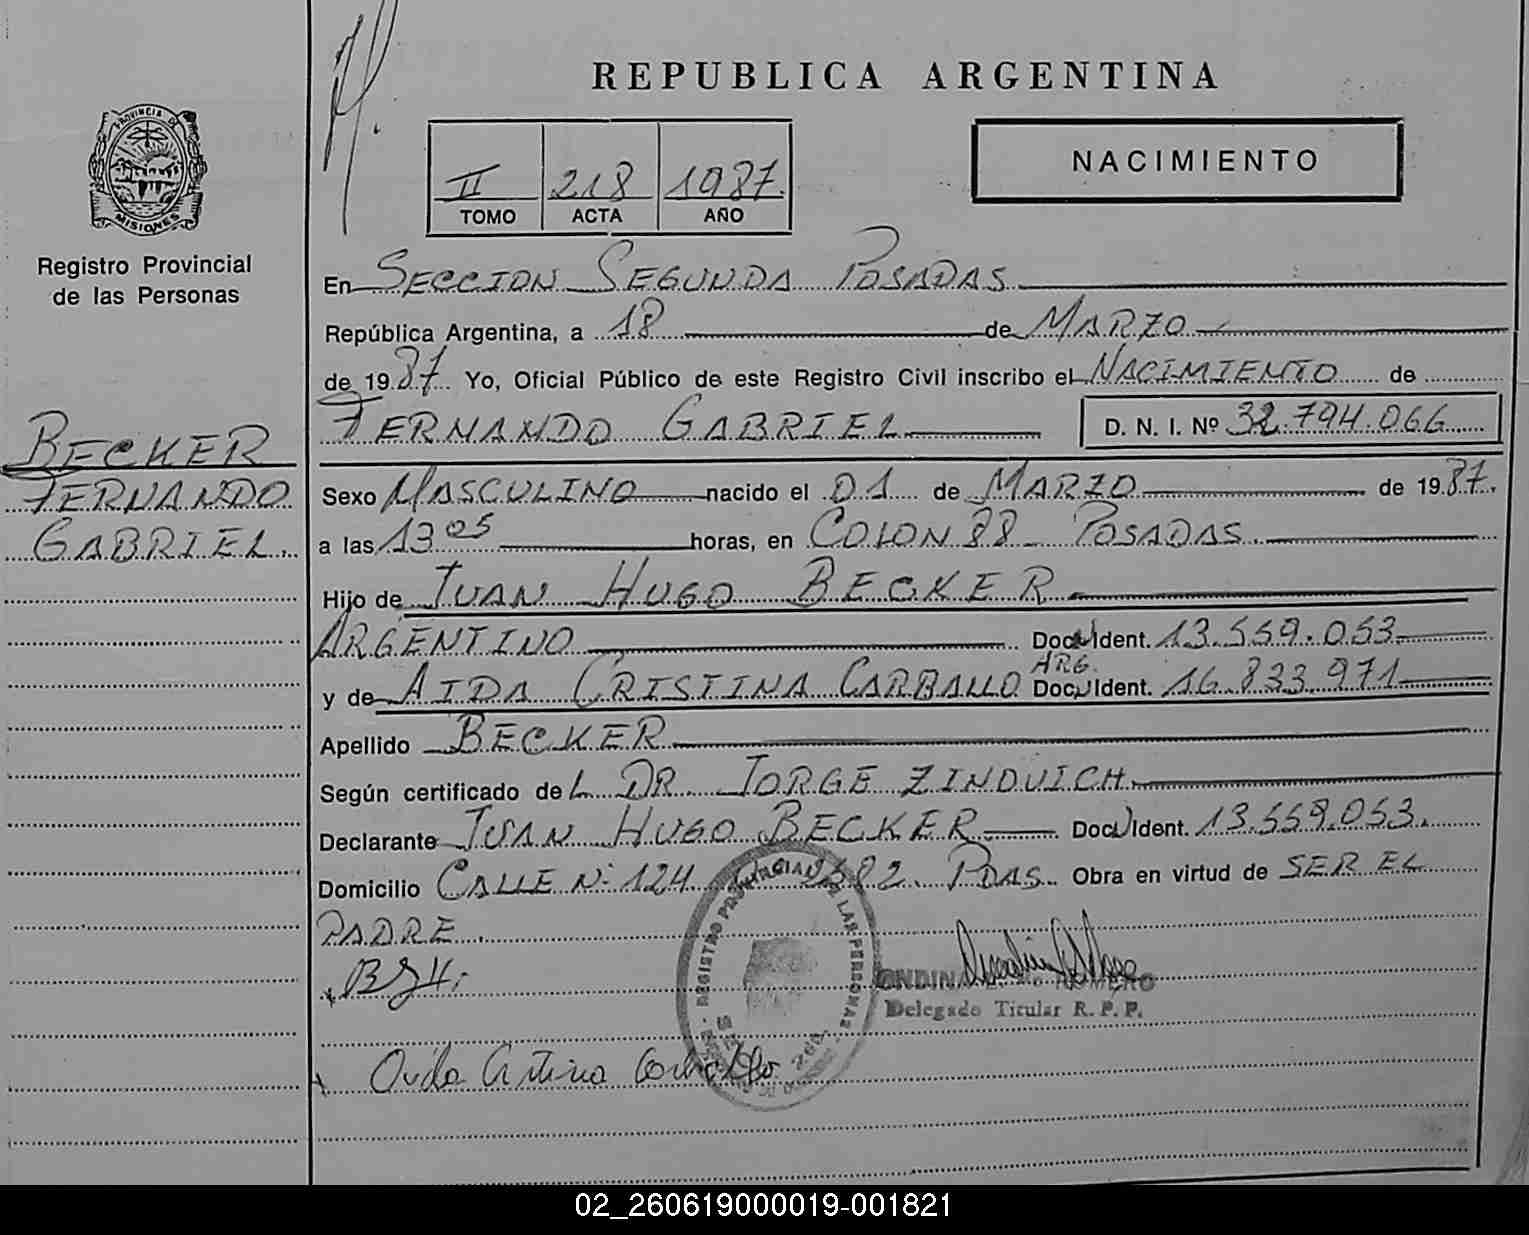 REPUBLICA ARGENTINA
PROVINCIA DE
MISIONES
Registro Provincial
de las Personas
II 218 1987.
TOMO ACTA AÑO
NACIMIENTO
En SECCION SEGUNDA POSADAS
República Argentina, a 18 de MARZO
de 1987 Yo, Oficial Público de este Registro Civil inscribo el NACIMIENTO de
FERNANDO GABRIEL D. N. I. Nº 32.794.066
BECKER
FERNANDO
GABRIEL.
Sexo MASCULINO nacido el 01 de MARZO de 1987.
a las 13 05 horas, en COLON 88 - POSADAS.
Hijo de JUAN HUGO BECKER
ARGENTINO Doc. Ident. 13.559.053
ARG.
y de AIDA CRISTINA CARBALLO Doc. Ident. 16.833.971
Apellido BECKER
Según certificado del DR. JORGE ZINOVICH.
Declarante JUAN HUGO BECKER Doc. Ident. 13.559.053.
Domicilio CALLE Nº 124 2682. PDAS. Obra en virtud de SER EL
PADRE.
REGISTRO PROVINCIAL DE LAS PERSONAS
ROMERO
Delegado Titular R. P. P.
02_260619000019-001821